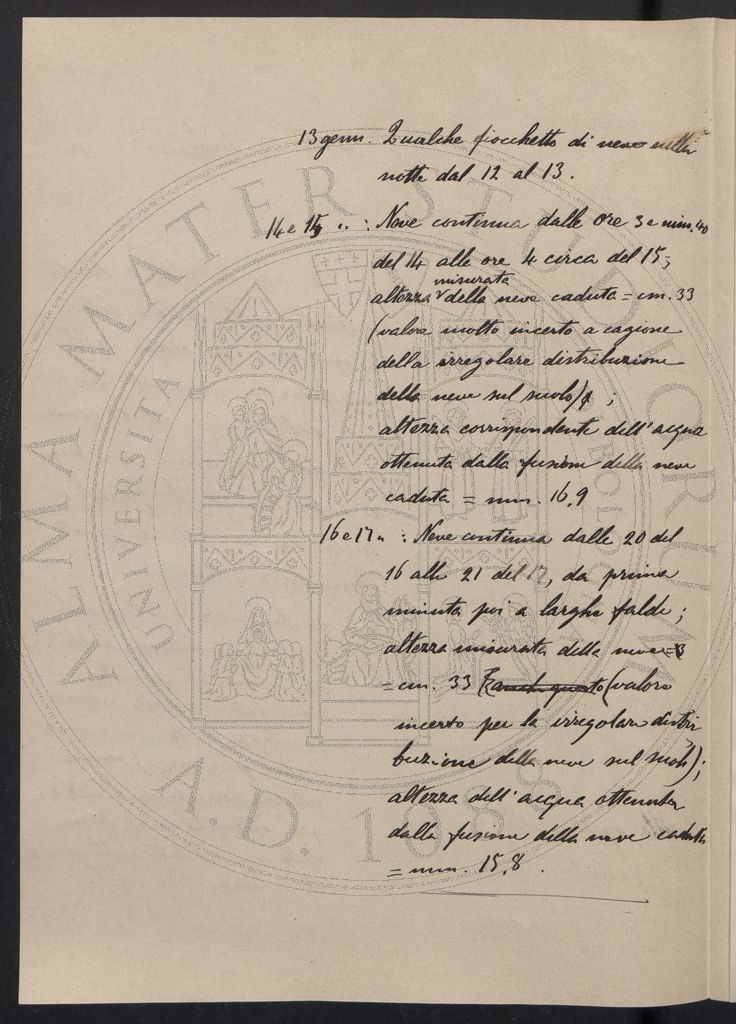 13 genn. Qualche fiocchetto di neve nella
notte dal 12 al 13.
14 e 15 " : Neve continua dalle ore 3 e min. 40
del 14 alle ore 4 circa del 15;
misurata
altezza della neve caduta = cm. 33
(valore molto incerto a cagione
della irregolare distribuzione
della neve sul suolo) ;
altezza corrispondente dell'acqua
ottenuta dalla fusione della neve
caduta = mm. 16,9
16 e 17 " : Neve continua dalle 20 del
16 alle 21 del 17, da prima
minuta poi a larghe falde;
altezza misurata della neve =
= cm. 33 (anche questo (valore
incerto per la irregolare distri
buzione della neve sul suolo);
altezza dell'acqua ottenuta
dalla fusione della neve caduta
= mm. 15,8.
ALMA MATER STUDIORUM
UNIVERSITA
BOLOGNA
A.D. 1088